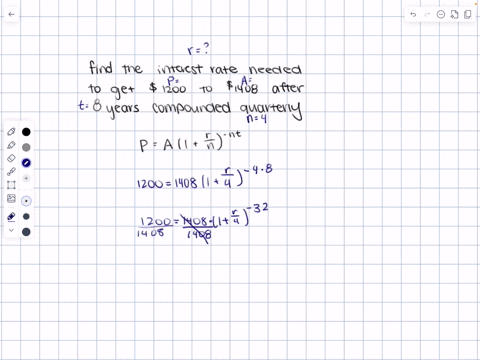 r = ?
find the interest rate needed
P= A=
to get $1200 to $1408 after
t= 8 years compounded quarterly
n=4
P = A(1 + r/n)^-nt
1200 = 1408(1 + r/4)^-4·8
1200/1408 = 1408/1408 · (1 + r/4)^-32